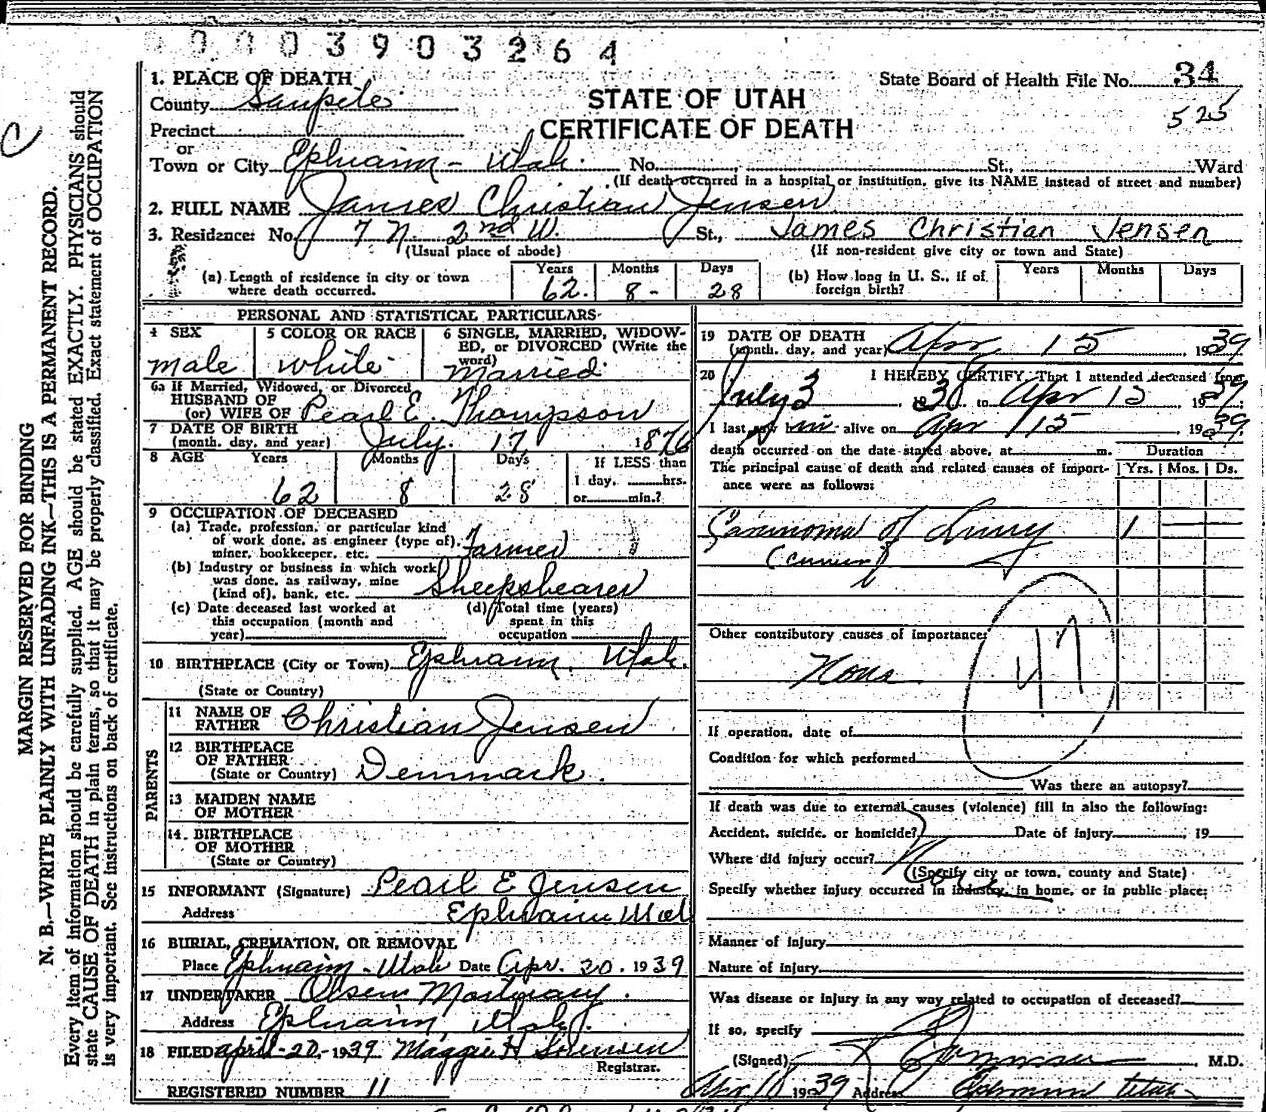 0003903264
1. PLACE OF DEATH
State Board of Health File No. 34
County Sanpete
STATE OF UTAH
525
Precinct
CERTIFICATE OF DEATH
or
Town or City Ephraim - Utah. No. St., Ward
(If death occurred in a hospital or institution, give its NAME instead of street and number)
2. FULL NAME James Christian Jensen
3. Residence: No. 7 N. 2nd W. St., James Christian Jensen
(Usual place of abode) (If non-resident give city or town and State)
(a) Length of residence in city or town where death occurred. Years 62. Months 8- Days 28
(b) How long in U. S., if of foreign birth? Years Months Days
PERSONAL AND STATISTICAL PARTICULARS
4 SEX male
5 COLOR OR RACE white
6 SINGLE, MARRIED, WIDOWED, or DIVORCED (Write the word) Married
6a If Married, Widowed, or Divorced
HUSBAND OF
(or) WIFE OF Pearl E. Thompson
7 DATE OF BIRTH
(month, day, and year) July. 17 1876
8 AGE Years 62 Months 8 Days 28
If LESS than
1 day, hrs.
or min.?
9 OCCUPATION OF DECEASED
(a) Trade, profession, or particular kind
of work done, as engineer (type of),
miner, bookkeeper, etc. Farmer
(b) Industry or business in which work
was done, as railway, mine
(kind of), bank, etc. Sheepshearer
(c) Date deceased last worked at
this occupation (month and
year)
(d) Total time (years)
spent in this
occupation
10 BIRTHPLACE (City or Town) Ephraim, Utah.
(State or Country)
PARENTS
11 NAME OF
FATHER Christian Jensen
12 BIRTHPLACE
OF FATHER
(State or Country) Denmark.
13 MAIDEN NAME
OF MOTHER
14. BIRTHPLACE
OF MOTHER
(State or Country)
15 INFORMANT (Signature) Pearl E Jensen
Address Ephraim Utah
16 BURIAL, CREMATION, OR REMOVAL
Place Ephraim - Utah Date Apr. 20. 1939
17 UNDERTAKER Olsen Mortuary.
Address Ephraim, Utah.
18 FILED april-20-1939 Maggie H Sorensen
Registrar.
REGISTERED NUMBER 11
19 DATE OF DEATH
(month, day, and year) Apr 15 1939
20 I HEREBY CERTIFY, That I attended deceased from
July 3 1938 to Apr 15 1939
I last saw him alive on Apr 15 1939.
death occurred on the date stated above, at m.
Duration
The principal cause of death and related causes of importance were as follows:
Yrs. Mos. Ds.
Carcinoma of 1
Other contributory causes of importance:
None
47
If operation, date of
Condition for which performed
Was there an autopsy?
If death was due to external causes (violence) fill in also the following:
Accident, suicide, or homicide? Date of injury , 19
Where did injury occur?
(Specify city or town, county and State)
Specify whether injury occurred in industry, in home, or in public place:
Manner of injury
Nature of injury
Was disease or injury in any way related to occupation of deceased?
If so, specify
(Signed) , M.D.
Apr 1939 Address Utah
MARGIN RESERVED FOR BINDING
N. B.—WRITE PLAINLY WITH UNFADING INK—THIS IS A PERMANENT RECORD.
Every item of information should be carefully supplied. AGE should be stated EXACTLY. PHYSICIANS should
state CAUSE OF DEATH in plain terms, so that it may be properly classified. Exact statement of OCCUPATION
is very important. See instructions on back of certificate.
C